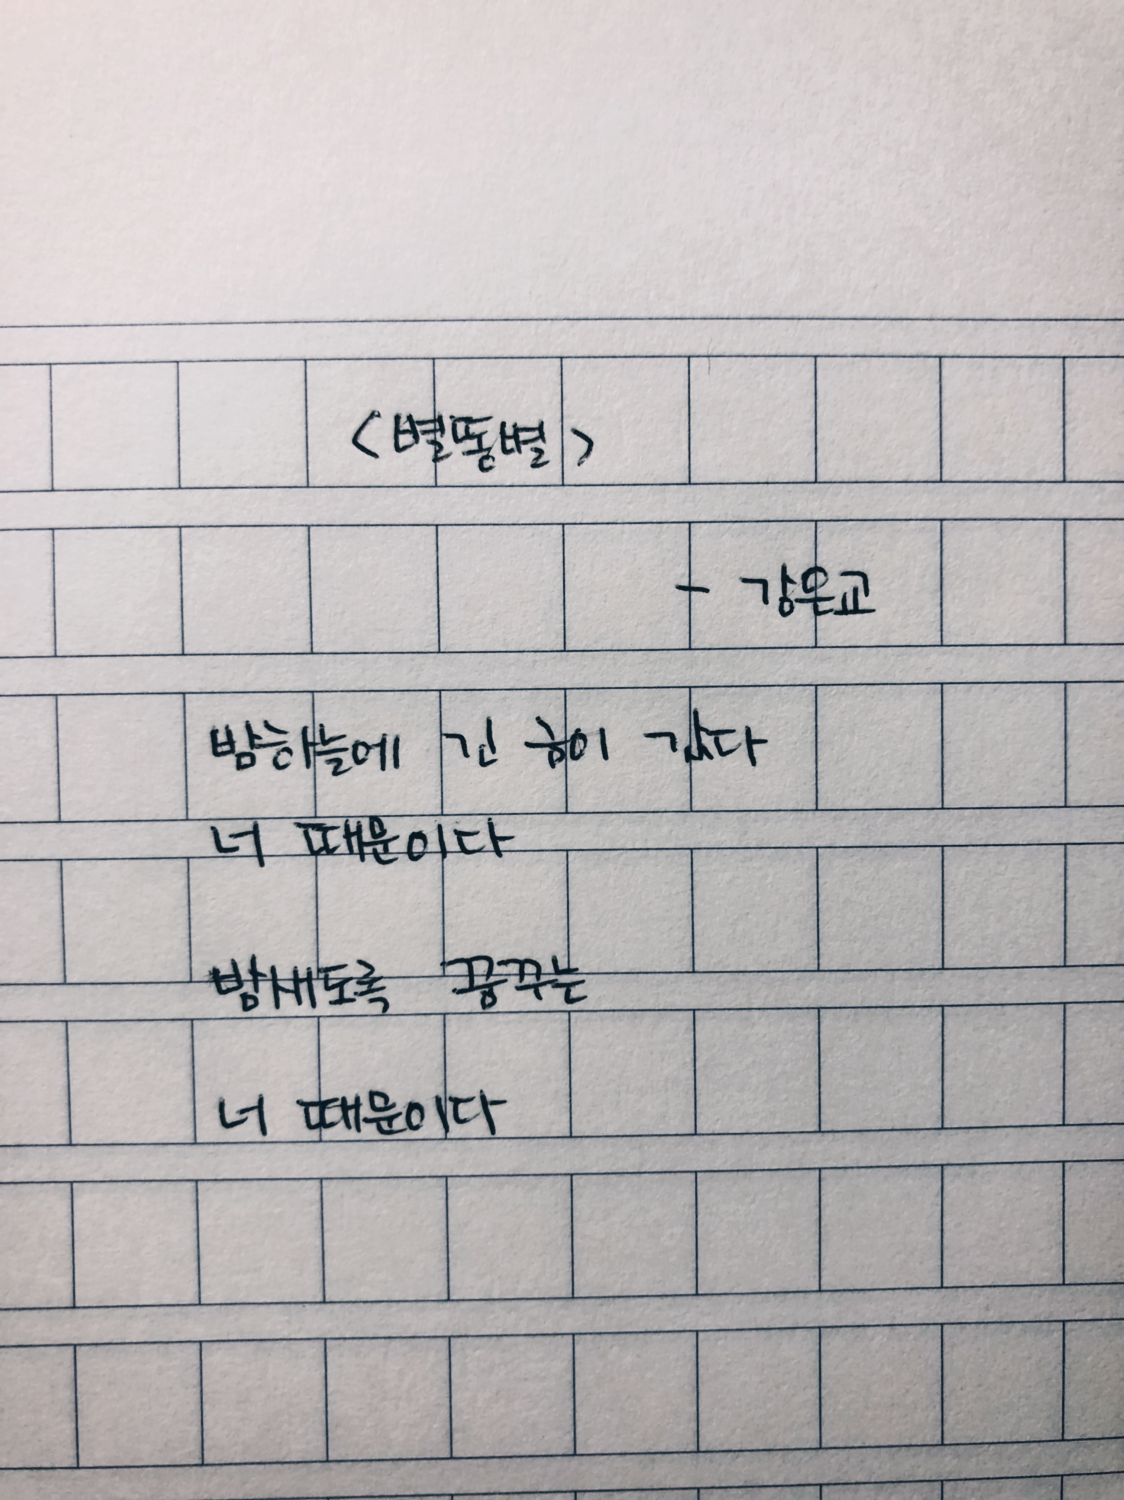 <별똥별>
- 강은교
밤하늘에 긴 금이 갔다
너 때문이다
밤새도록 꿈꾸는
너 때문이다